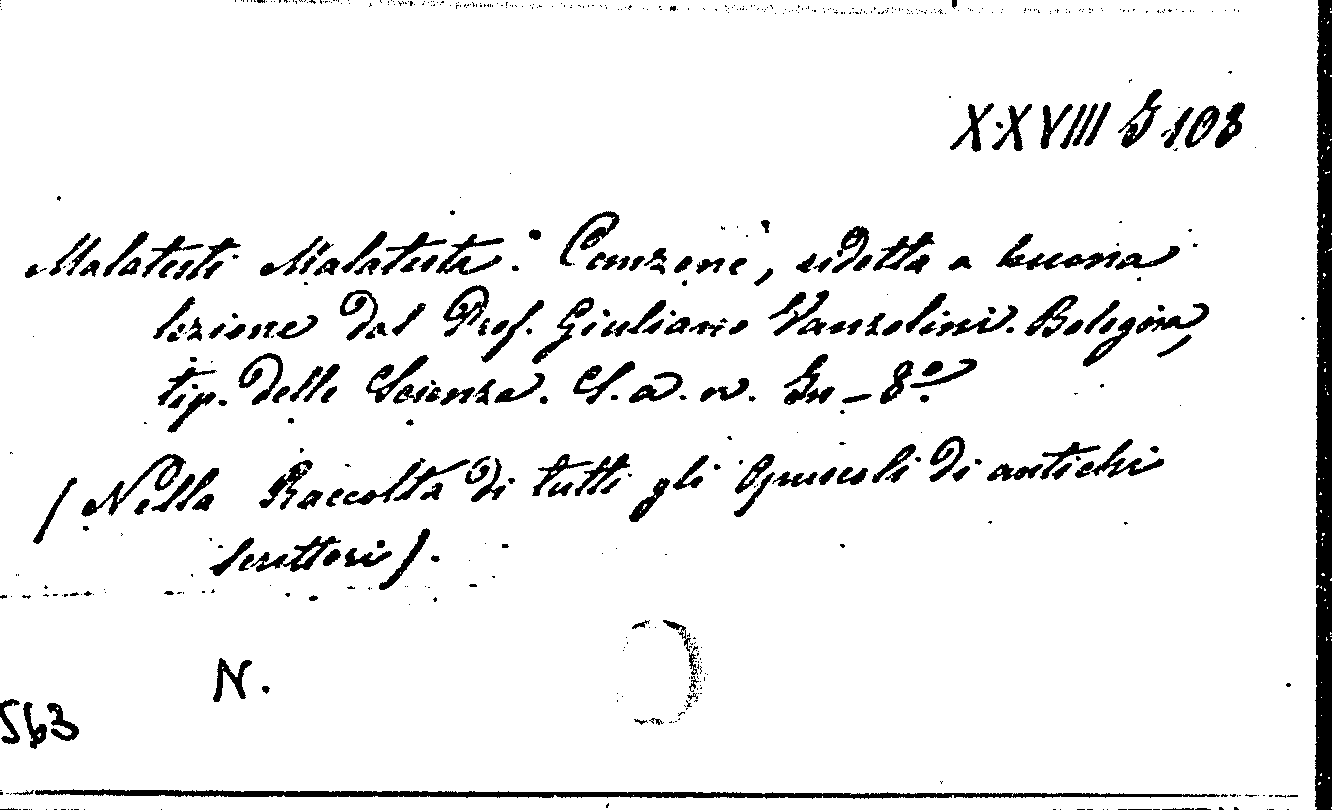 XXVIII G 108
Malatesti Malatesta. Canzone, ridotta a buona
lezione dal Prof. Giuliano Vanzolini. Bologna,
tip. delle Scienze. S. a. n. In-8º
(Nella Raccolta di tutti gli Opuscoli di antichi
scrittori).
N.
563